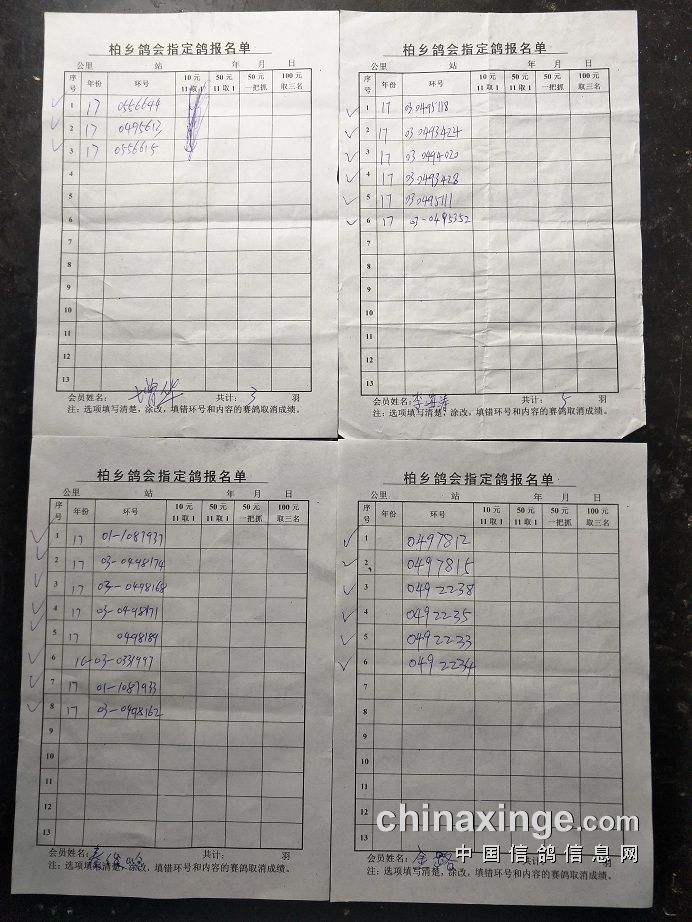 柏乡鸽会指定鸽报名单
公里 站 年 月 日
序号 年份 环号 10元 11取1 50元 11取1 50元 一把抓 100元 取三名
1 17 0556644
2 17 0495613
3 17 0556615
4
5
6
7
8
9
10
11
12
13
会员姓名: 共计: 3 羽
注:选项填写清楚,涂改,填错环号和内容的赛鸽取消成绩。
柏乡鸽会指定鸽报名单
公里 站 年 月 日
序号 年份 环号 10元 11取1 50元 11取1 50元 一把抓 100元 取三名
1 17 03 0495118
2 17 03 0493424
3 17 03 0494020
4 17 03 0493428
5 17 03 0495111
6 17 03-0495352
7
8
9
10
11
12
13
会员姓名: 李海涛 共计: 5 羽
注:选项填写清楚,涂改,填错环号和内容的赛鸽取消成绩。
柏乡鸽会指定鸽报名单
公里 站 年 月 日
序号 年份 环号 10元 11取1 50元 11取1 50元 一把抓 100元 取三名
1 17 01-1087937
2 17 03-0498174
3 17 03-0498168
4 17 03-0498171
5 17 0498189
6 16-03-0331997
7 17 01-1087933
8 17 03-0498162
9
10
11
12
13
会员姓名: 共计: 羽
注:选项填写清楚,涂改,填错环号和内容的赛鸽取消成绩。
柏乡鸽会指定鸽报名单
公里 站 年 月 日
序号 年份 环号 10元 11取1 50元 11取1 50元 一把抓 100元 取三名
1 0497812
2 0497815
3 0492238
4 0492235
5 0492233
6 0492234
7
8
9
10
11
12
13
会员姓名: 共计: 羽
注:选项填写清楚,涂改,填错环号和内容的赛鸽取消成绩。
chinaxinge.com
中国信鸽信息网